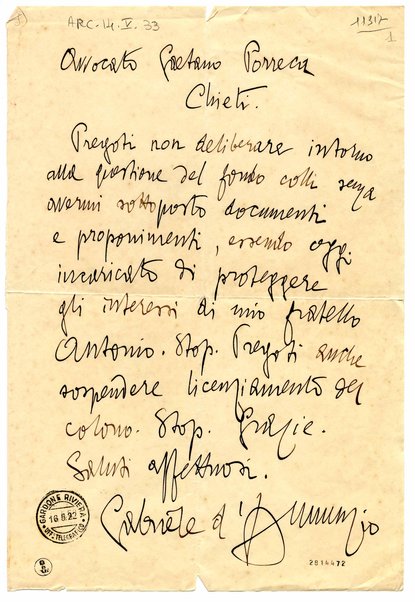 ARC-14.V.33
11317
1
Avvocato Gaetano Porreca
Chieti.
Pregoti non deliberare intorno
alla questione del fondo colli senza
avermi sottoposto documenti
e proponimenti, essendo oggi
incaricato di proteggere
gli interessi di mio fratello
Antonio. Stop. Pregoti anche
sospendere licenziamento del
colono. Stop. Grazie.
Saluti affettuosi.
Gabriele d'Annunzio
GARDONE RIVIERA
16.8.22
2814472